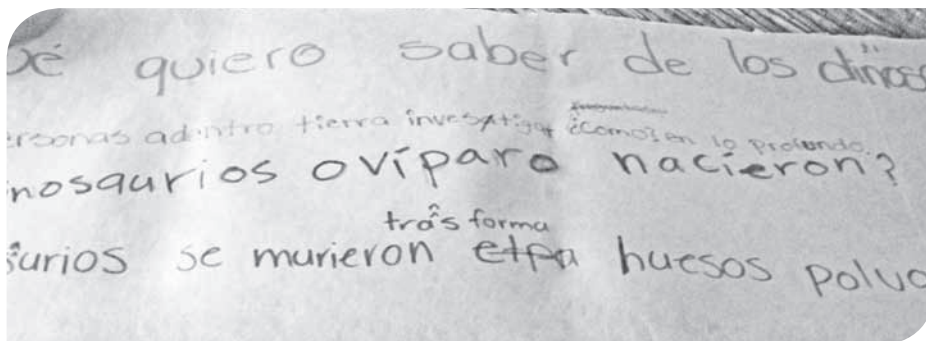 é quiero saber de los dinos
ersonas adintro tierra investigar ¿como? en lo profundo.
nosaurios ovíparo nacieron?
tras forma
surios se murieron huesos polvo